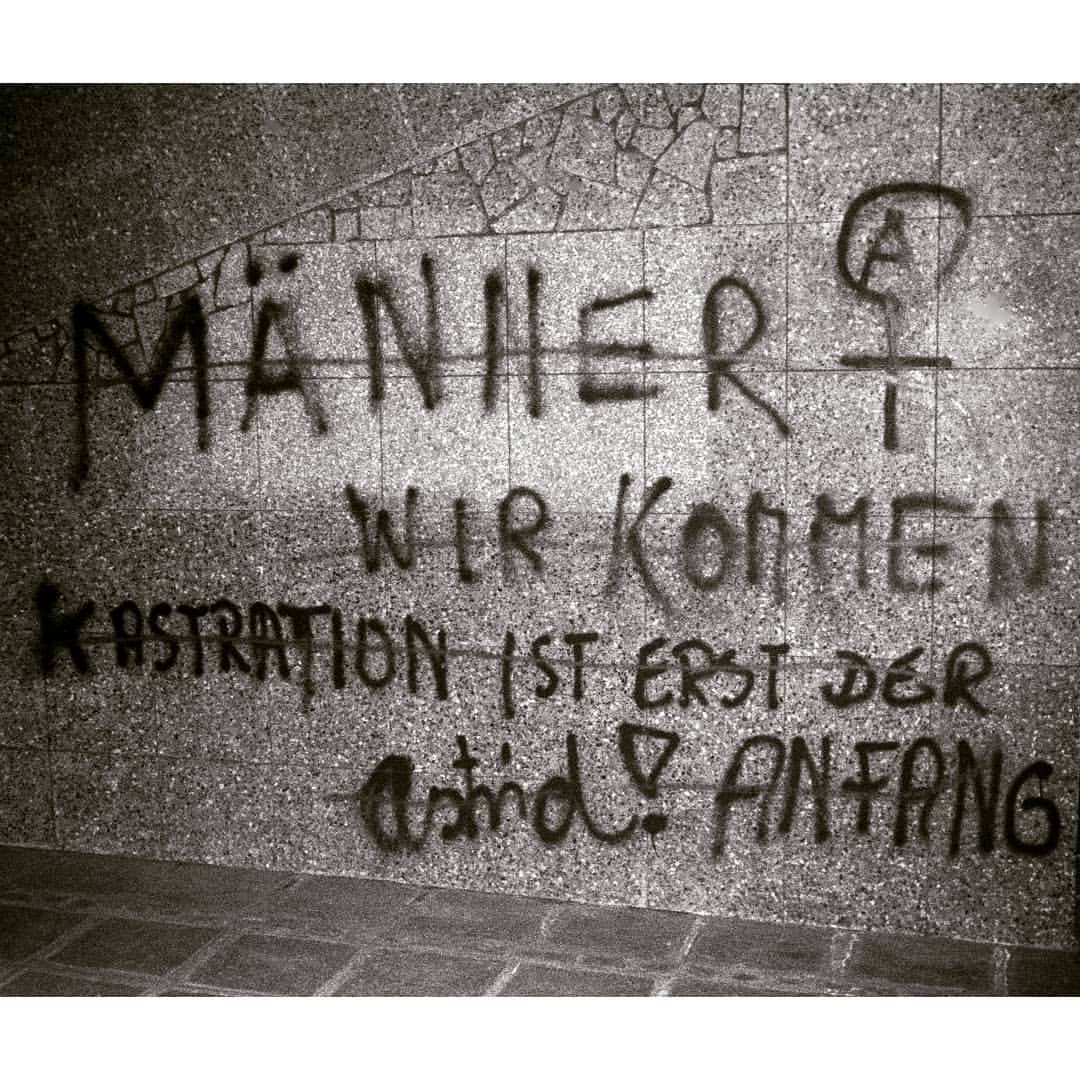 MÄNNER A
WIR KOMMEN
KASTRATION IST ERST DER
astrid! ANFANG